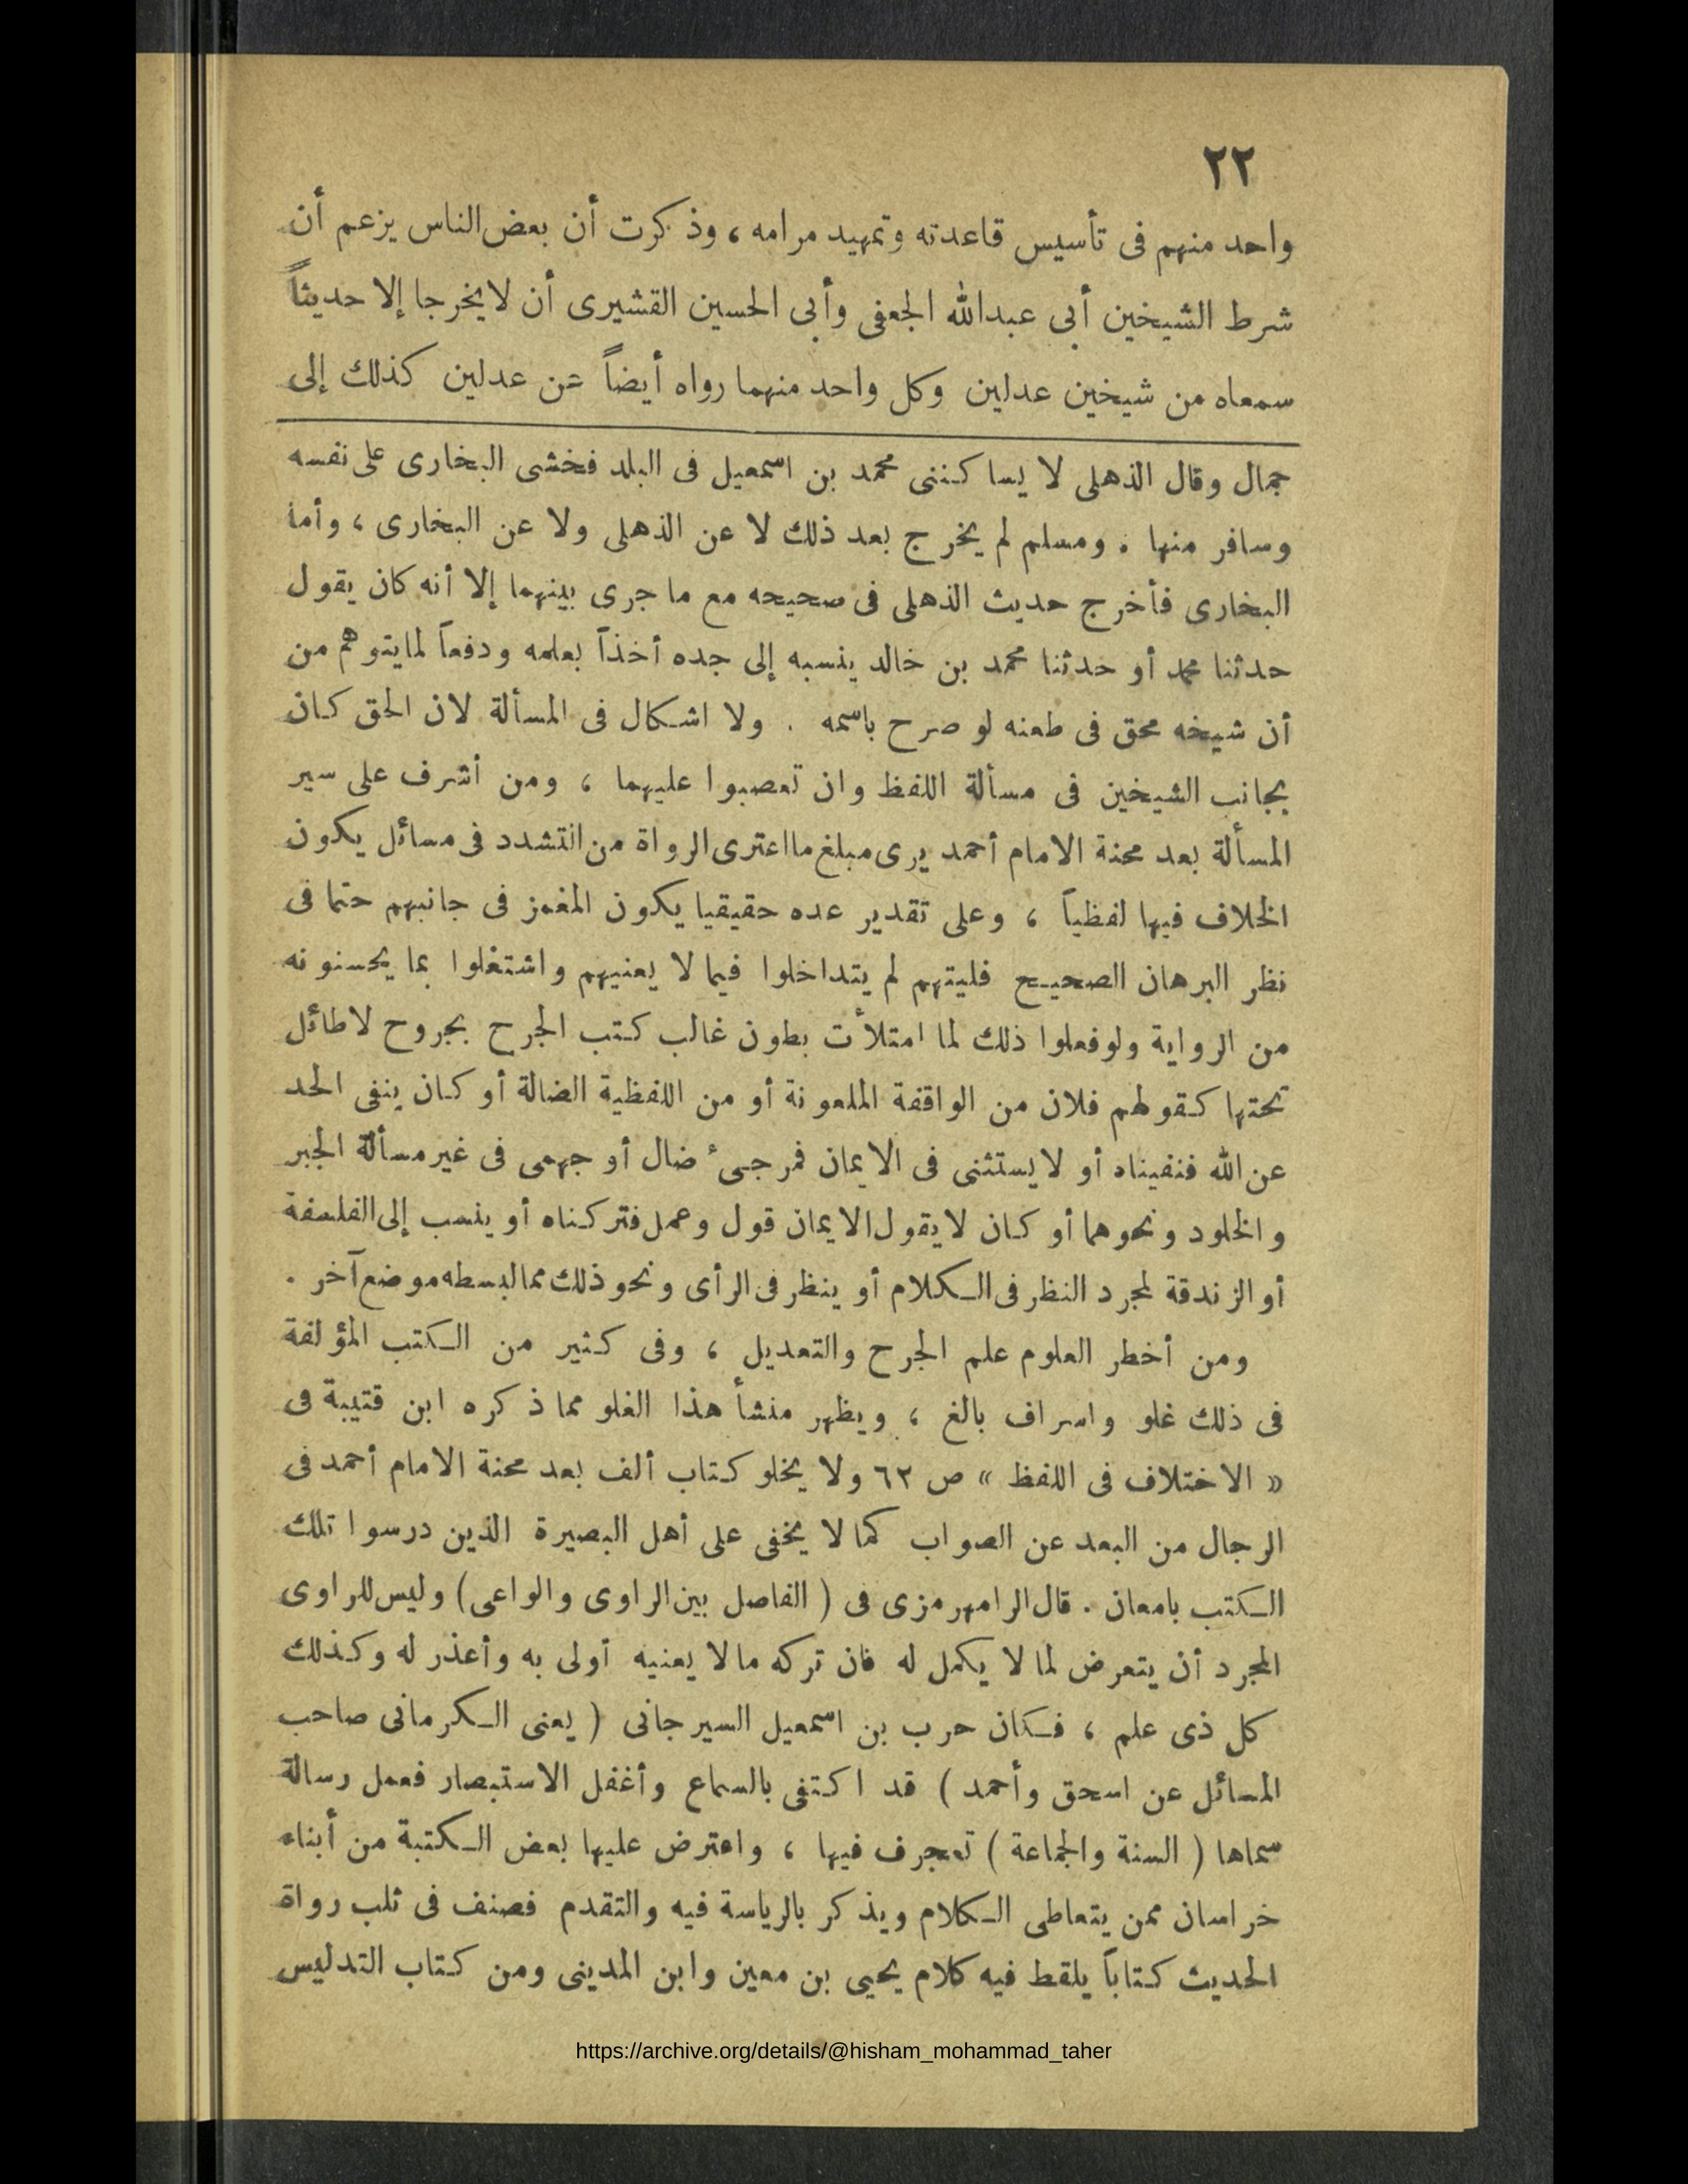 ٢٢
واحد منهم فى تأسيس قاعدته وتمهيد مرامه ، وذكرت أن بعض الناس يزعم أن
شرط الشيخين أبى عبدالله الجعفى وأبى الحسين القشيرى أن لايخرجا إلا حديثاً
سمعاه من شيخين عدلين وكل واحد منهما رواه أيضاً عن عدلين كذلك إلى
جمال وقال الذهلى لا يساكننى محمد بن اسمعيل فى البلد فخشى البخارى على نفسه
وسافر منها . ومسلم لم يخرج بعد ذلك لا عن الذهلى ولا عن البخارى ، وأما
البخارى فأخرج حديث الذهلى فى صحيحه مع ما جرى بينهما إلا أنه كان يقول
حدثنا محمد أو حدثنا محمد بن خالد ينسبه إلى جده أخذاً بعلمه ودفعاً لمايتوهم من
أن شيخه محق فى طعنه لو صرح باسمه . ولا اشكال فى المسألة لان الحق كان
بجانب الشيخين فى مسألة اللفظ وان تعصبوا عليهما ، ومن أشرف على سير
المسألة بعد محنة الامام أحمد يرى مبلغ مااعترى الرواة من التشدد فى مسائل يكون
الخلاف فيها لفظياً ، وعلى تقدير عده حقيقيا يكون المغمز فى جانبهم حتما فى
نظر البرهان الصحيح فليتهم لم يتداخلوا فيما لا يعنيهم واشتغلوا بما يحسنونه
من الرواية ولوفعلوا ذلك لما امتلأت بطون غالب كتب الجرح بجروح لاطائل
تحتها كقولهم فلان من الواقفة الملعونة أو من اللفظية الضالة أو كان ينفى الحد
عن الله فنفيناه أو لايستثنى فى الايمان فمرجىء ضال أو جهمى فى غير مسألة الجبر
والخلود ونحوهما أو كان لايقول الايمان قول وعمل فتركناه أو ينسب إلى الفلسفة
أو الزندقة لمجرد النظر فى الكلام أو ينظر فى الرأى ونحو ذلك مما لبسطه موضع آخر .
ومن أخطر العلوم علم الجرح والتعديل ، وفى كثير من الكتب المؤلفة
فى ذلك غلو واسراف بالغ ، ويظهر منشأ هذا الغلو مما ذكره ابن قتيبة فى
« الاختلاف فى اللفظ » ص ٦٢ ولا يخلو كتاب ألف بعد محنة الامام أحمد فى
الرجال من البعد عن الصواب كما لا يخفى على أهل البصيرة الذين درسوا تلك
الكتب بامعان . قال الرامهرمزى فى ( الفاصل بين الراوى والواعى ) وليس للراوى
المجرد أن يتعرض لما لا يكمل له فان تركه مالا يعنيه أولى به وأعذر له وكذلك
كل ذى علم ، فكان حرب بن اسمعيل السيرجانى ( يعنى الكرمانى صاحب
المسائل عن اسحق وأحمد ) قد اكتفى بالسماع وأغفل الاستبصار فعمل رسالة
سماها ( السنة والجماعة ) تعجرف فيها ، واعترض عليها بعض الكتبة من أبناء
خراسان ممن يتعاطى الكلام ويذكر بالرياسة فيه والتقدم فصنف فى ثلب رواة
الحديث كتاباً يلقط فيه كلام يحيى بن معين وابن المدينى ومن كتاب التدليس
https://archive.org/details/@hisham_mohammad_taher